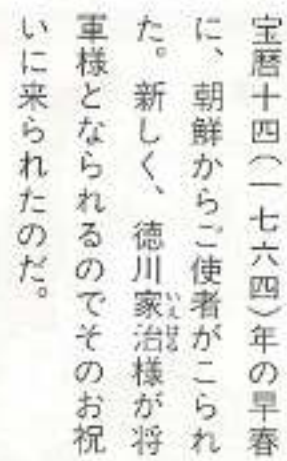 宝暦十四（一七六四）年の早春
に、朝鮮からご使者がこられ
た。新しく、徳川家治様が将
軍様となられるのでそのお祝
いに来られたのだ。